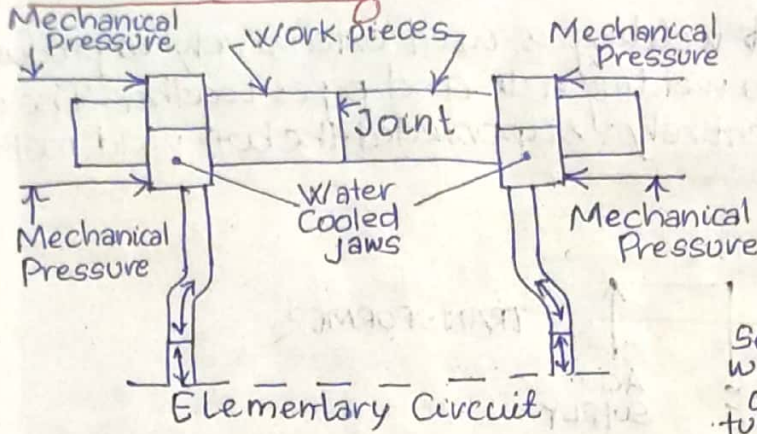 Mechanical
Pressure
Work pieces
Mechanical
Pressure
Joint
Water
Cooled
jaws
Mechanical
Pressure
Mechanical
Pressure
Elementary Circuit